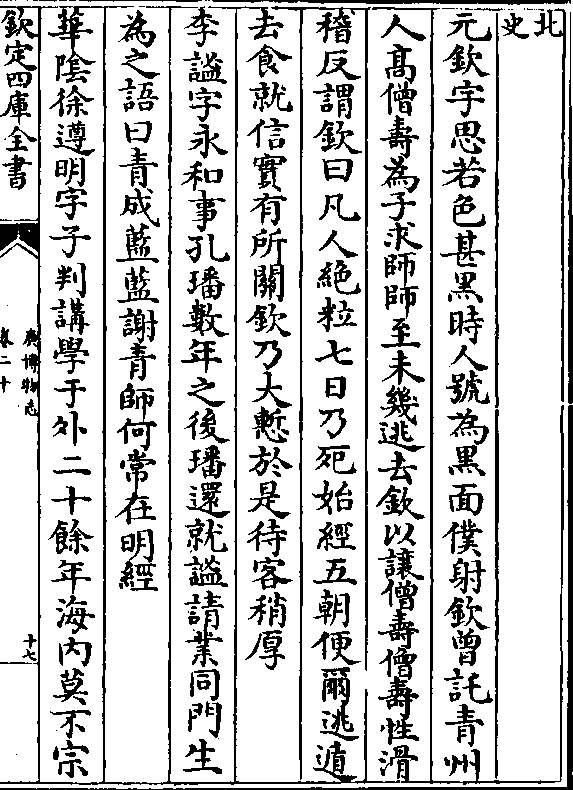 北
史
元欽字思若色甚黑時人號為黒面僕射欽曾託青州
人髙僧壽為子求師師至未幾逃去欽以讓僧壽僧壽性滑
稽反謂欽曰凡人絶粒七日乃死始經五朝便爾逃遁
去食就信實有所闗欽乃大慙於是待客稍厚
李謐字永和事孔璠數年之後璠還就謐請業同門生
為之語曰青成藍藍謝青師何常在明經
華陰徐遵明字子判講學于外二十餘年海内莫不宗
欽定四庫全書
廣博物志
卷二十
十七